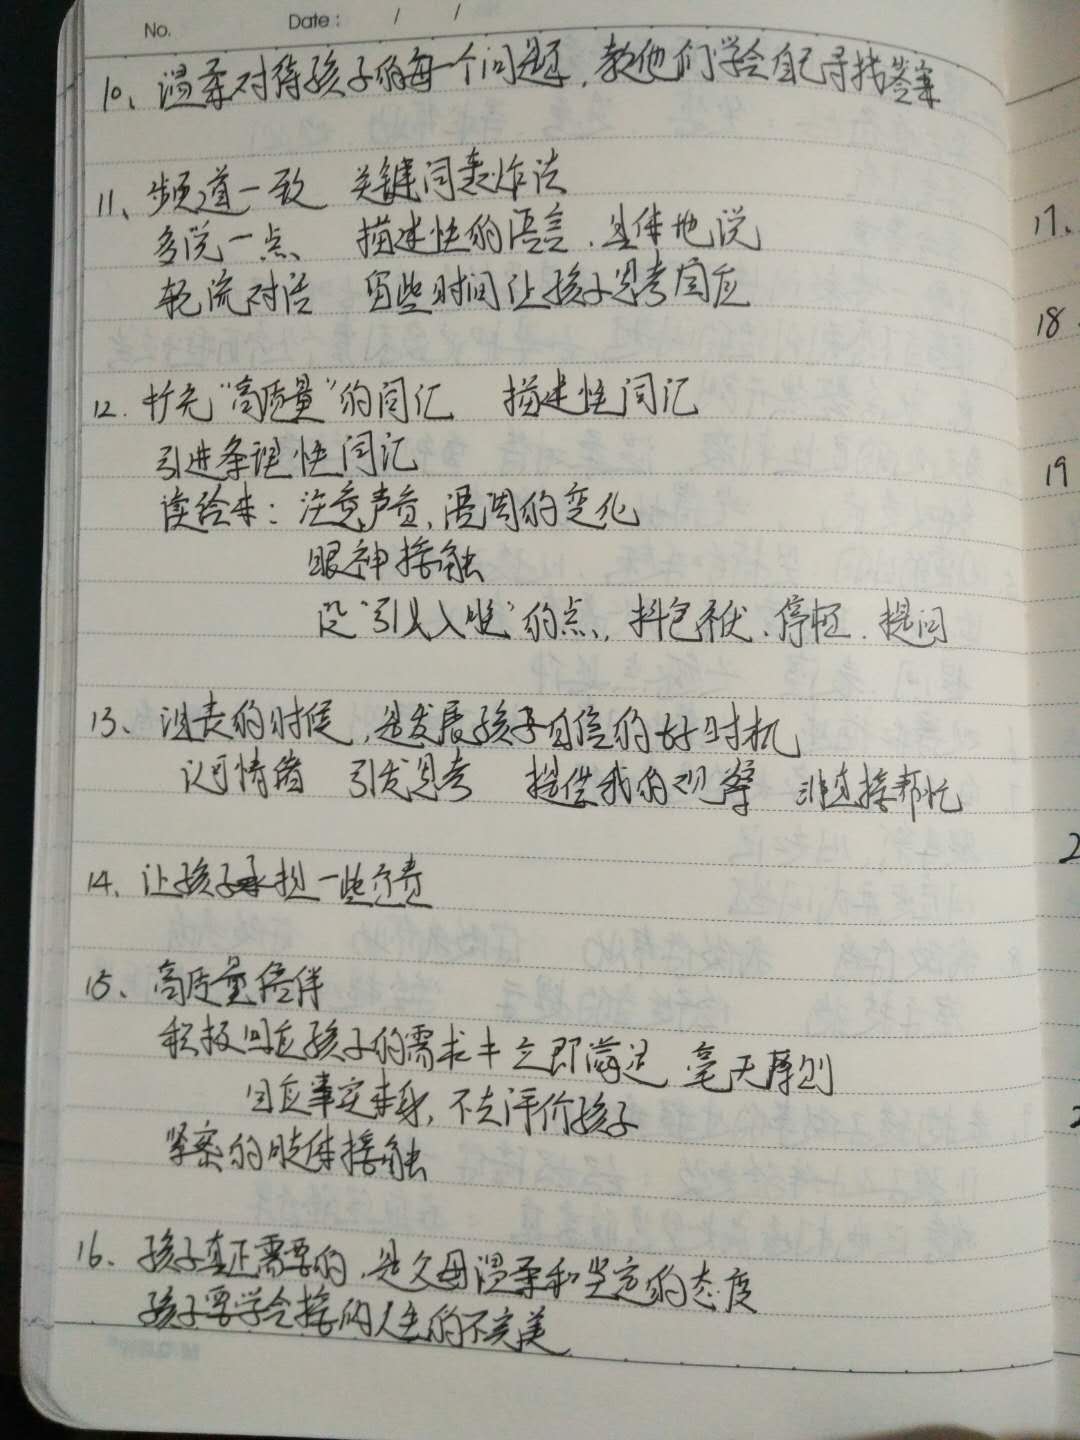 No.
Date: / /
10、温柔对待孩子的每一个问题，教他们学会自己寻找答案
11、频道一致 关键词轰炸法
多说一点、 描述性的语言、具体地说
轮流对话 留些时间让孩子思考回应
12. 扩充“高质量”的词汇 描述性词汇
引进条理性词汇
读绘本：注意声音、语调的变化
眼神接触
设“引人入胜”的点，抖包袱、停顿、提问
13、沮丧的时候，是发展孩子自信的好时机
认可情绪 引发思考 提供我的观察 非直接帮忙
14、让孩子承担一些责
15、高质量陪伴
积极回应孩子的需求≠立即满足 毫无原则
回应事实本身，不去评价孩子
紧密的肢体接触
16、孩子真正需要的，是父母温柔和坚定的态度
孩子要学会接纳人生的不完美
17、
18
19
2
2